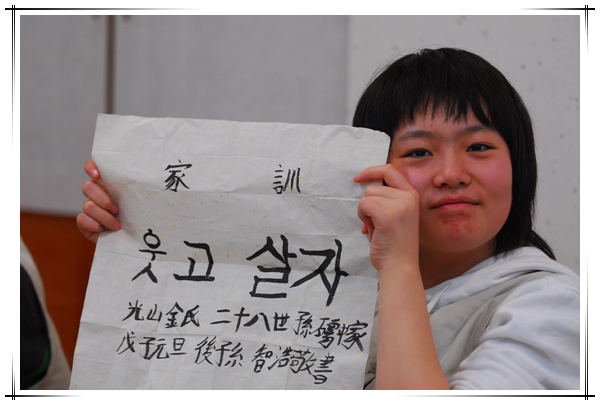 家 訓
웃고 살자
光山金氏 二十八世孫 家
戊子元旦 後孫 智浩敬書